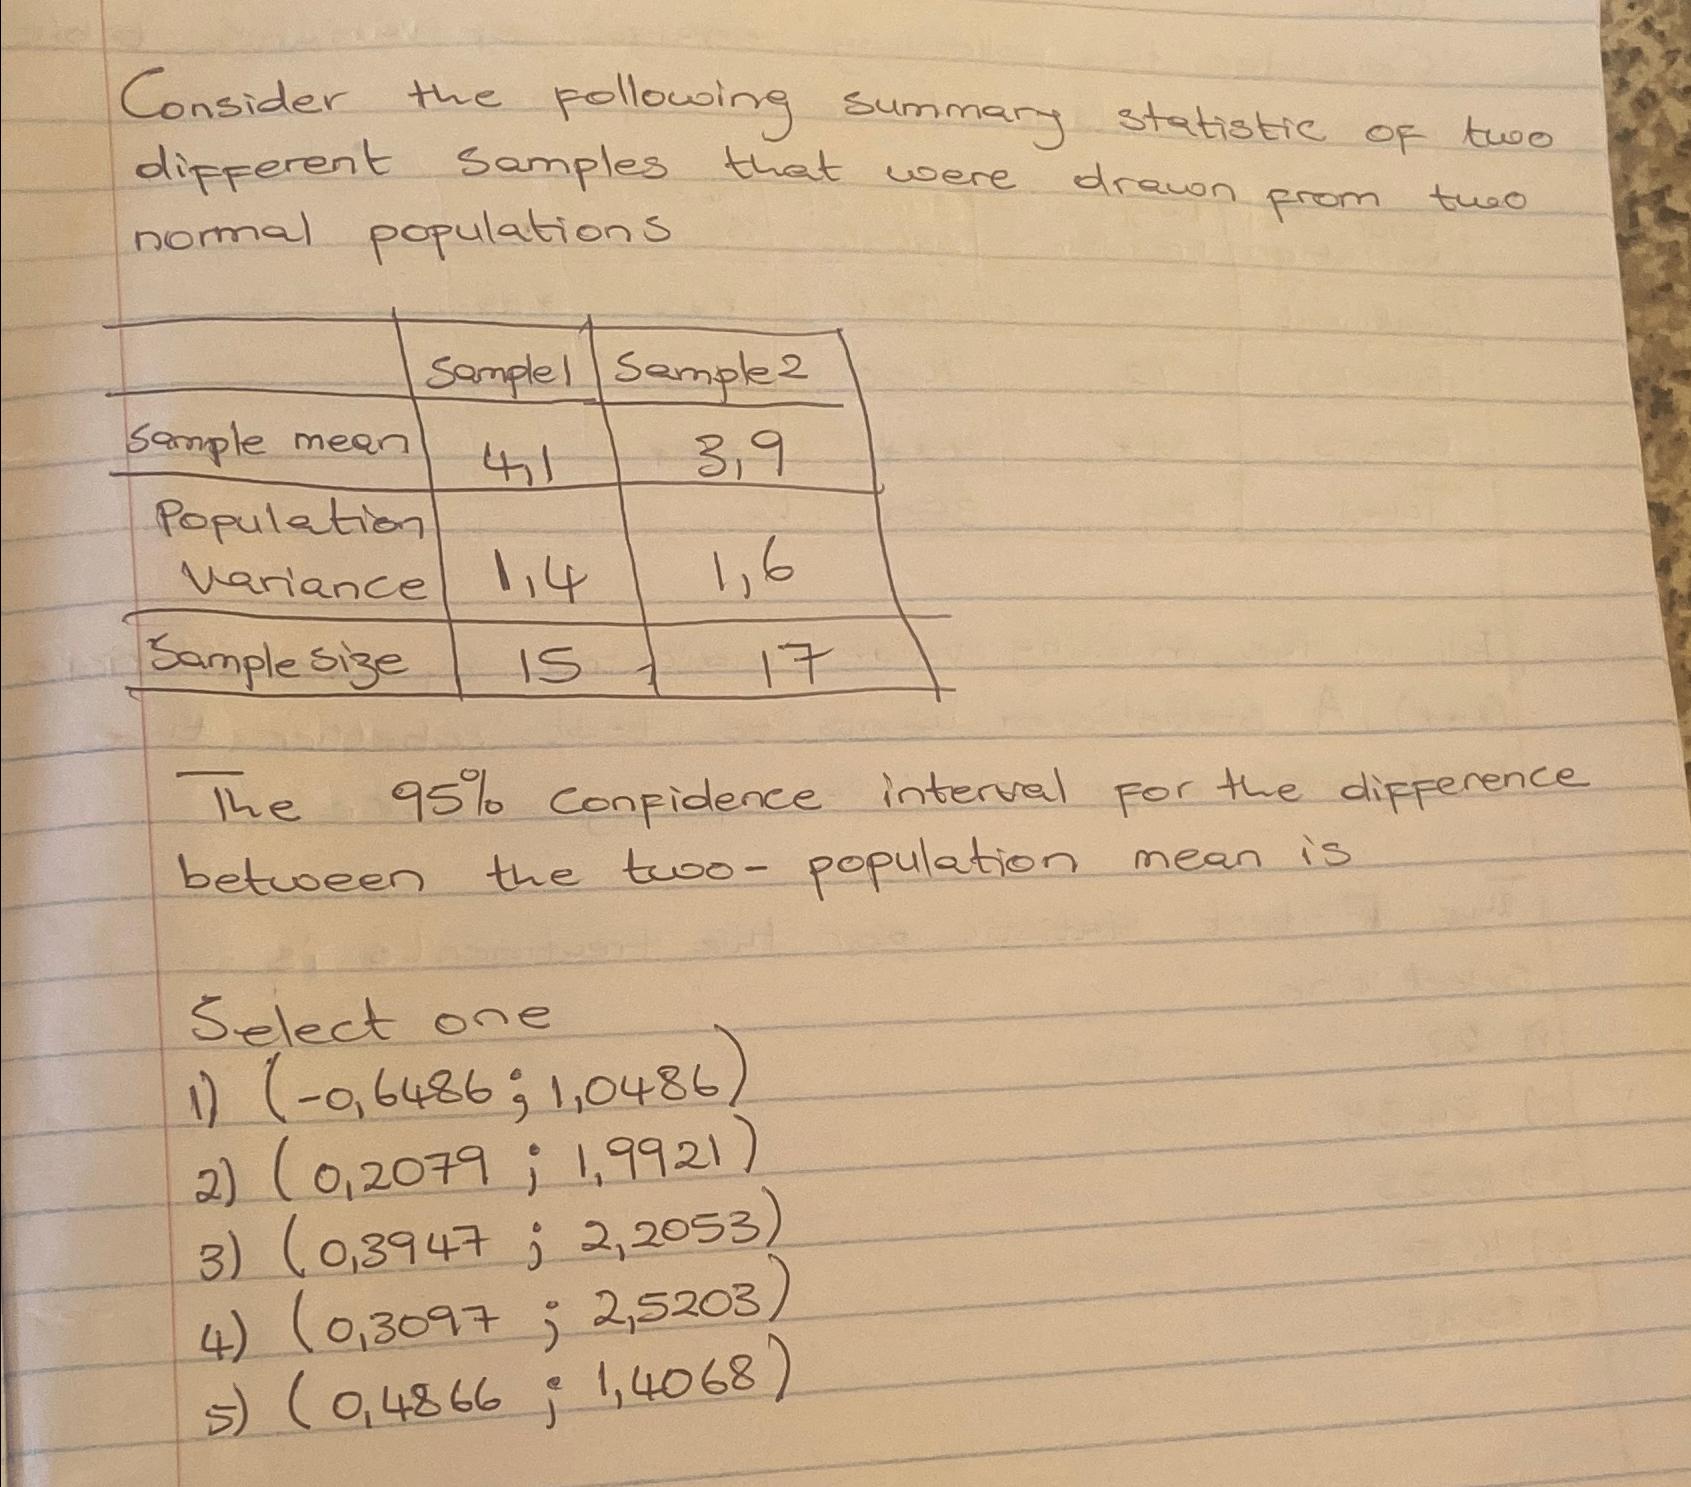 Consider the following summary statistic of two
different samples that were drawn from two
normal populations
Sample1 Sample2
Sample mean 4,1 3,9
Population
Variance 1,4 1,6
Sample size 15 17
The 95% confidence interval for the difference
between the two-population mean is
Select one
1) (-0,6486 ; 1,0486)
2) (0,2079 ; 1,9921)
3) (0,3947 ; 2,2053)
4) (0,3097 ; 2,5203)
5) (0,4866 ; 1,4068)